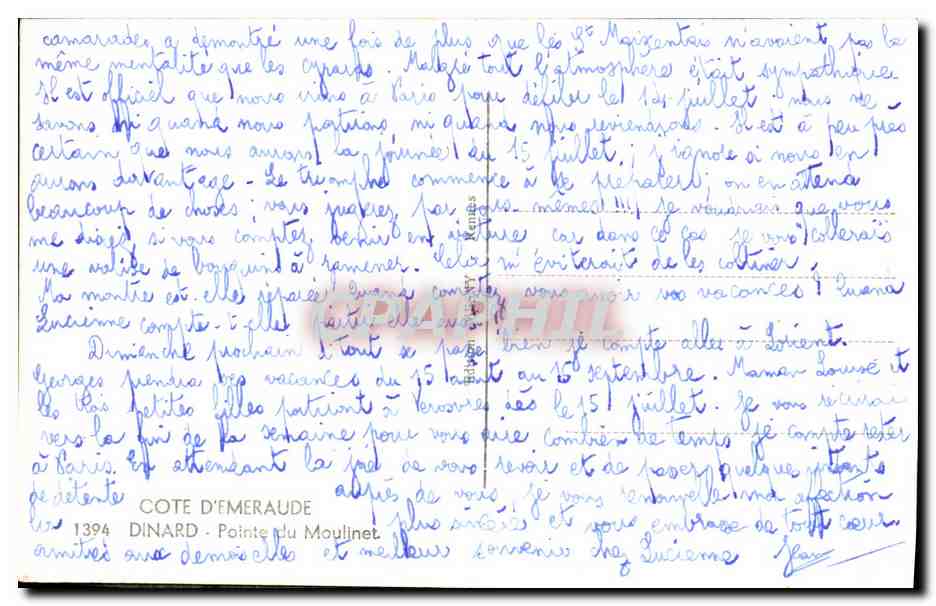 camarades a démontré une fois de plus que les St Maixentais n'avaient pas la
même mentalité que les cyrards. Malgré tout l'atmosphère était sympathique.
Il est officiel que nous irons à Paris pour défiler le 14 juillet, nous ne
savons ni quand nous partirons, ni quand nous reviendrons. Il est à peu près
certain que nous aurons la journée du 15 juillet, j'ignore si nous en
aurons davantage - Le triomphe commence à se préparer; on en attend
beaucoup de choses; vous jugerez par vous-mêmes!!! Je voudrais que vous
me disiez si vous comptez venir en voiture car dans ce cas je vous collerais
une valise de bouquins à ramener. Cela m'éviterait de les coltiner!
Ma montre est-elle réparée? Quand comptez vous avoir vos vacances? Quand
Lucienne compte-t-elle partir elle aussi?
Dimanche prochain si tout se passe bien je compte aller à Lorient.
Georges prendra ses vacances du 15 août au 15 septembre. Maman Louise et
les trois petites filles partiront à Verosvres dès le 15 juillet. Je vous écrirai
vers la fin de la semaine pour vous dire combien de temps je compte rester
à Paris. En attendant la joie de vous revoir et de passer quelques instants
de détente auprès de vous, je vous renouvelle mon affection
la plus sincère et vous embrasse de tout coeur.
amitiés aux demoiselles et meilleur souvenir chez Lucienne Jean
COTE D'EMERAUDE
1394 DINARD - Pointe du Moulinet
Rennes
CPAPHIL